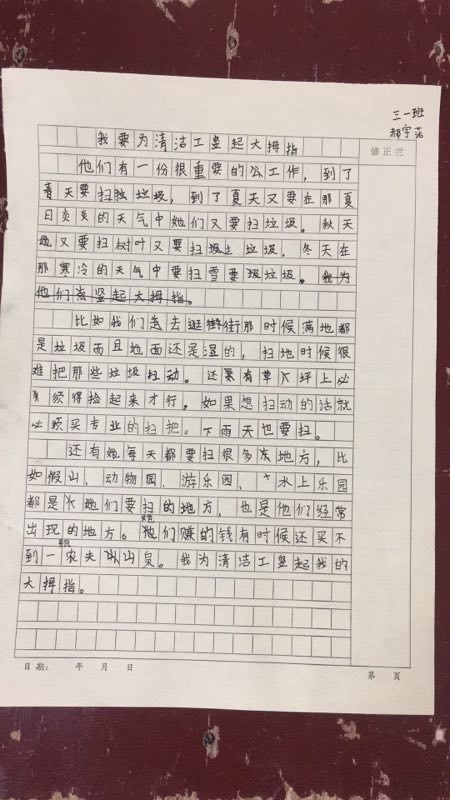 三一班
我要为清洁工竖起大拇指
修正栏
他们有一份很重要的公工作，到了
春天要扫垃圾，到了夏天又要在那夏
日炎炎的天气中她们又要扫垃圾。秋天
她又要扫树叶又要扫垃圾，冬天在
那寒冷的天气中要扫雪要圾垃圾。我为
他们点竖起大拇指。
比如我们走去逛街那时候满地都
是垃圾而且地面还是湿的，扫地时候很
难把那些垃圾扫动。还有草坪上必
须得捡起来才行。如果想扫动的话就
必须买专业的扫把。下雨天也要扫。
还有她每天都要扫很多东地方，比
如假山、动物园、游乐园、水上乐园
都是她们要扫的地方，也是他们经常
出现的地方。她们赚的钱有时候还买不
到一瓶农夫山泉。我为清洁工竖起我的
大拇指。
日期： 年 月 日
第 頁